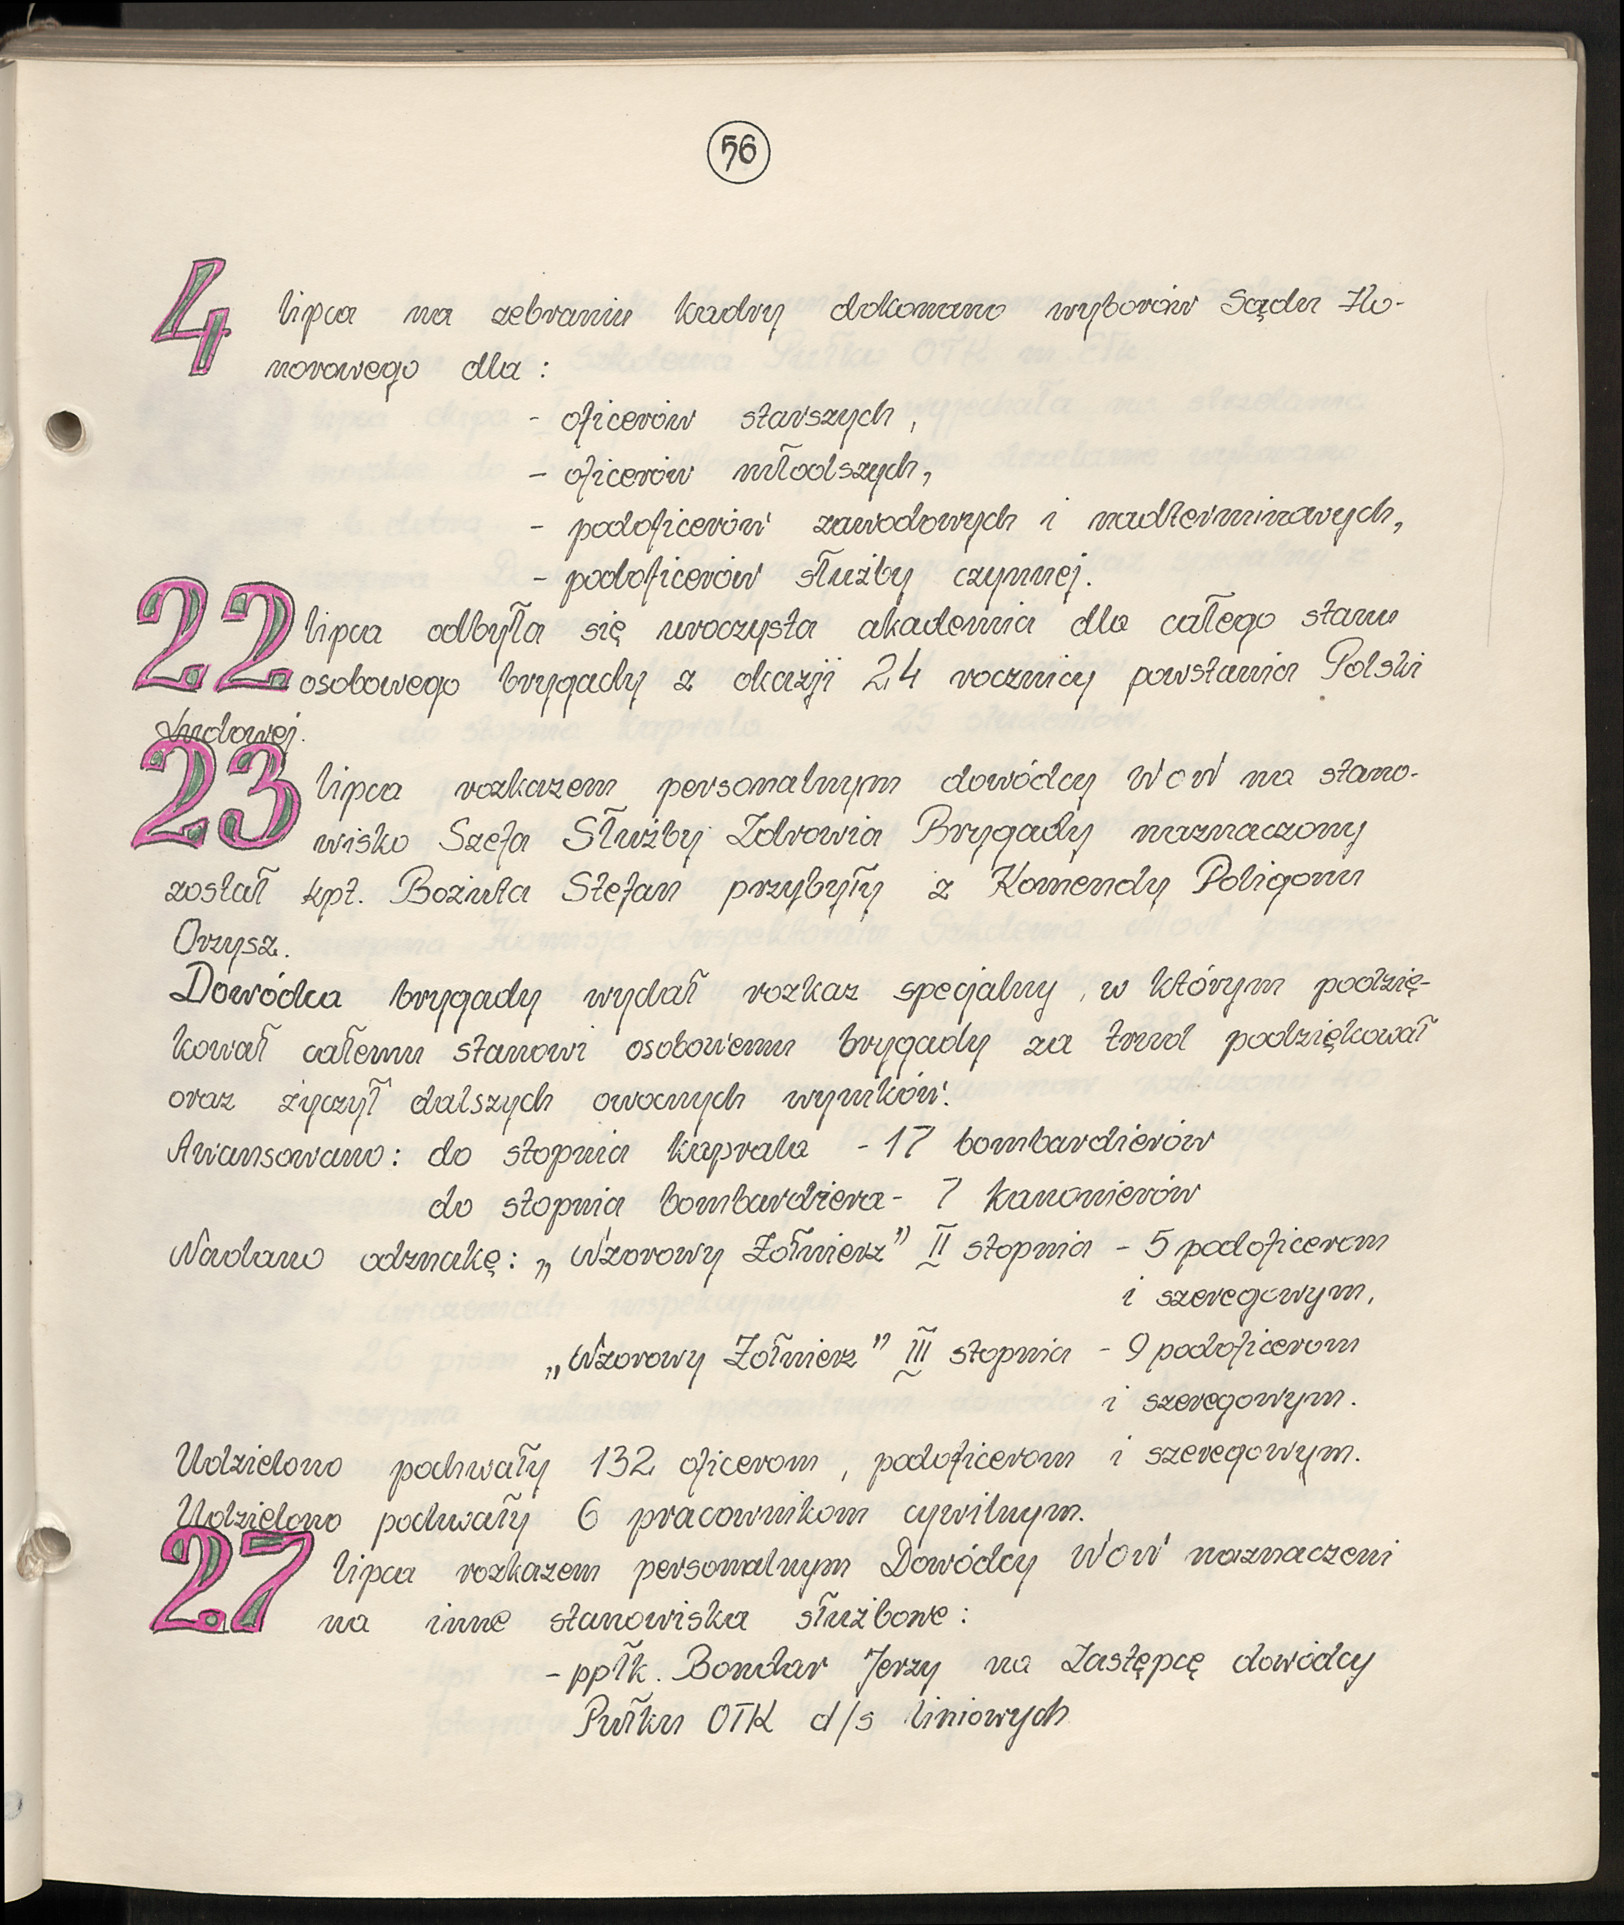 56
4 lipca na zebraniu kadry dokonano wyborów Sądu Ho-
norowego dla :
- oficerów starszych,
- oficerów młodszych,
- podoficerów zawodowych i nadterminowych,
- podoficerów służby czynnej.
22 lipca odbyła się uroczysta akademia dla całego stanu
osobowego brygady z okazji 24 rocznicy powstania Polski
Ludowej.
23 lipca rozkazem personalnym dowódcy WOW na stano-
wisko Szefa Służby Zdrowia Brygady naznaczony
został kpt. Boziuta Stefan przybyły z Komendy Poligonu
Orzysz.
Dowódca brygady wydał rozkaz specjalny, w którym podzię-
kował całemu stanowi osobowemu brygady za trud podziękował
oraz życzył dalszych owocnych wyników.
Awansowano: do stopnia kaprala - 17 bombardierów
do stopnia bombardiera - 7 kanonierów
Nadano odznakę: „Wzorowy Żołnierz" II stopnia - 5 podoficerom
i szeregowym,
„Wzorowy Żołnierz" III stopnia - 9 podoficerom
i szeregowym.
Udzielono pochwały 132 oficerom, podoficerom i szeregowym.
Udzielono pochwały 6 pracownikom cywilnym.
27 lipca rozkazem personalnym Dowódcy WOW naznaczeni
na inne stanowiska służbowe:
- ppłk. Bondar Jerzy na Zastępcę dowódcy
Pułku OTK d/s liniowych